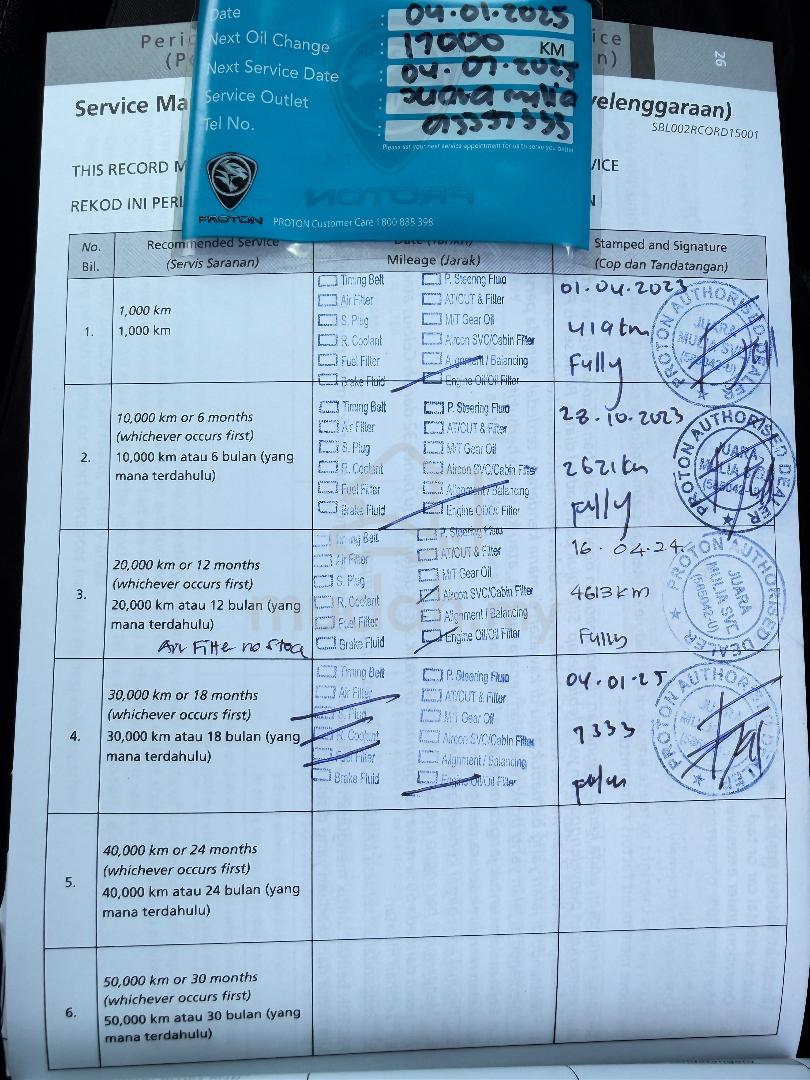 Date : 04.01.2025
Next Oil Change : 17000 KM
Next Service Date : 04.07.2025
Service Outlet : Juara mulia
Tel No. :
Please set your next service appointment for us to serve you better
PROTON
PROTON Customer Care 1800 885 398
26
Service Ma
yelenggaraan)
SBL002RCORD15001
THIS RECORD M
VICE
REKOD INI PERI
No.
Bil.
Recommended Service
(Servis Saranan)
Date (Tarikh)
Mileage (Jarak)
Stamped and Signature
(Cop dan Tandatangan)
1.
1,000 km
1,000 km
Timing Belt
Air Filter
S. Plug
R. Coolant
Fuel Filter
Brake Fluid
P. Steering Fluid
AT/CUT & Filter
M/T Gear Oil
Aircon SVC/Cabin Filter
Alignment / Balancing
Engine Oil/Oil Filter
01.04.2023
419km
Fully
PROTON AUTHORISED DEALER
JUARA
MULIA SVC
(585042-U)
2.
10,000 km or 6 months
(whichever occurs first)
10,000 km atau 6 bulan (yang
mana terdahulu)
Timing Belt
Air Filter
S. Plug
R. Coolant
Fuel Filter
Brake Fluid
P. Steering Fluid
AT/CUT & Filter
M/T Gear Oil
Aircon SVC/Cabin Filter
Alignment / Balancing
Engine Oil/Oil Filter
28.10.2023
2621km
fully
PROTON AUTHORISED DEALER
JUARA
MULIA SVC
(585042-U)
3.
20,000 km or 12 months
(whichever occurs first)
20,000 km atau 12 bulan (yang
mana terdahulu)
Air Filter no Stock
Timing Belt
Air Filter
S. Plug
R. Coolant
Fuel Filter
Brake Fluid
P. Steering Fluid
AT/CUT & Filter
M/T Gear Oil
Aircon SVC/Cabin Filter
Alignment / Balancing
Engine Oil/Oil Filter
16.04.24
4613km
Fully
PROTON AUTHORISED DEALER
JUARA
MULIA SVC
(585042-U)
4.
30,000 km or 18 months
(whichever occurs first)
30,000 km atau 18 bulan (yang
mana terdahulu)
Timing Belt
Air Filter
S. Plug
R. Coolant
Fuel Filter
Brake Fluid
P. Steering Fluid
AT/CUT & Filter
M/T Gear Oil
Aircon SVC/Cabin Filter
Alignment / Balancing
Engine Oil/Oil Filter
04.01.25
7333
PROTON AUTHORISED DEALER
5.
40,000 km or 24 months
(whichever occurs first)
40,000 km atau 24 bulan (yang
mana terdahulu)
6.
50,000 km or 30 months
(whichever occurs first)
50,000 km atau 30 bulan (yang
mana terdahulu)